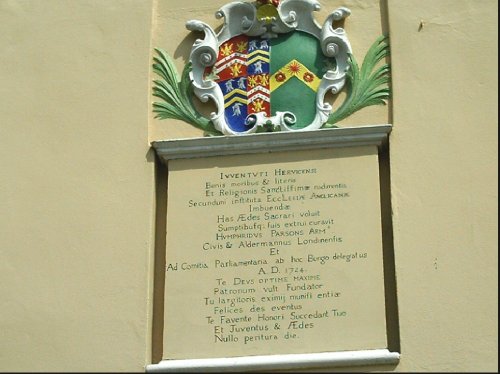 IVVENTUTI HERVICENSI
Bonis moribus & literis
Et Religionis Sanctissimæ rudimentis
Secundum instituta EccLESIÆ ANGLICANÆ
Imbuendæ
Has Ædes Sacrari voluit
Sumptibusq: suis extrui curavit
HUMPHRIDUS PARSONS ARMR
Civis & Aldermannus Londinensis
Et
Ad Comitia Parliamentaria ab hoc Burgo delegatus
A.D. 1724.
Te DEUS OPTIME MAXIME
Patronum vult Fundator
Tu largitoris eximij munifi centiæ
Felices des eventus
Te Favente Honori Succedant Tuo
Et Juventus & Ædes
Nullo peritura die.